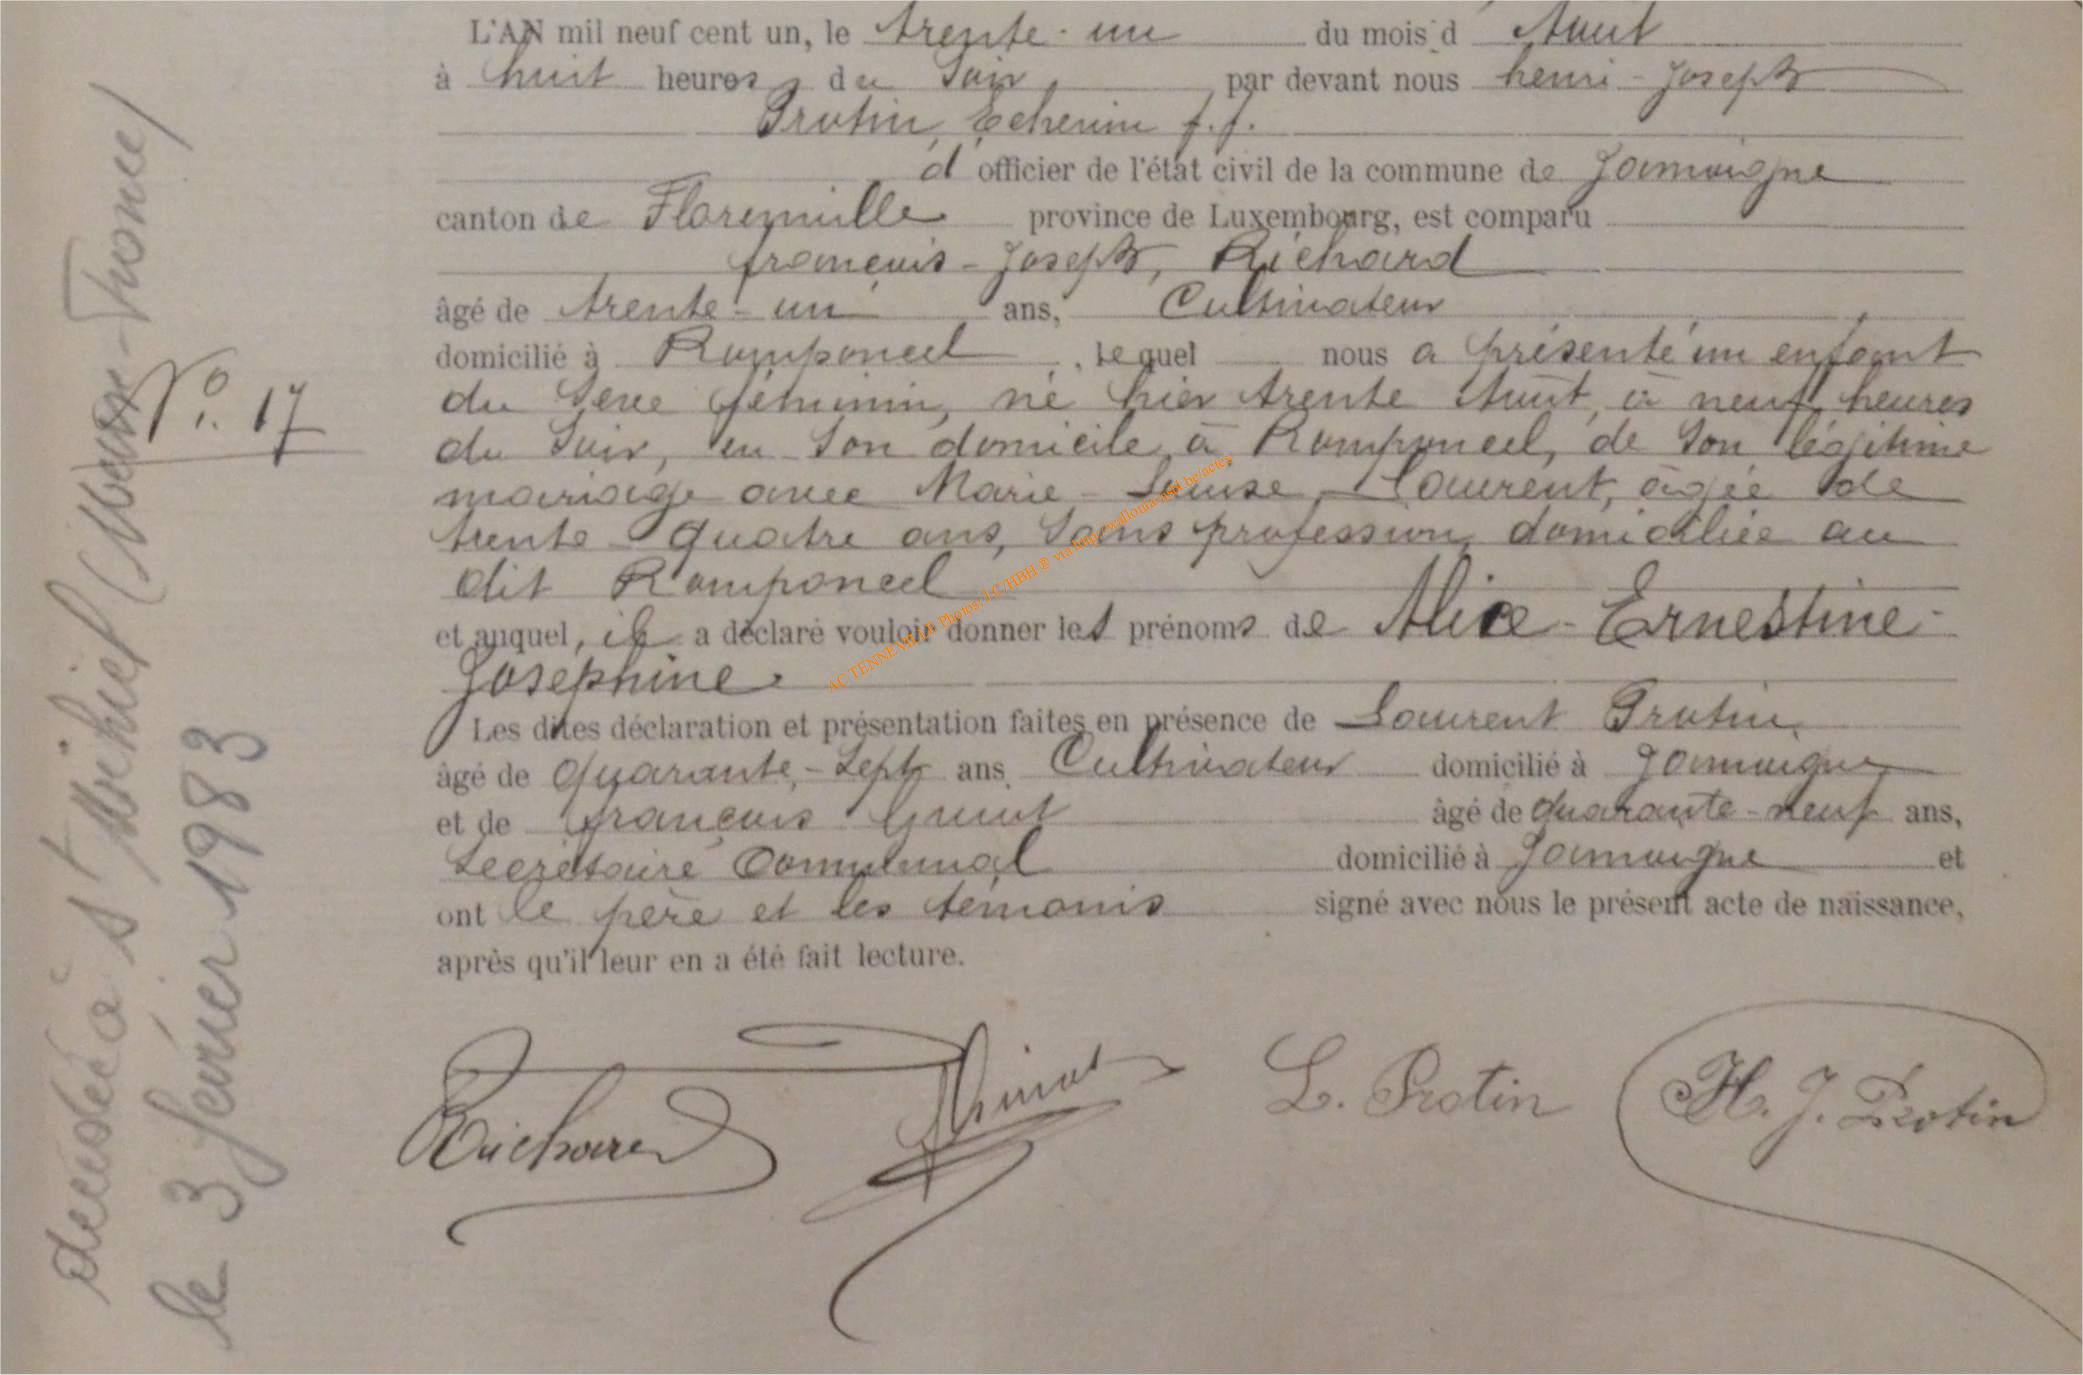 L'AN mil neuf cent un, le trente-un du mois d Août
à huit heures du soir par devant nous henri-Joseph
Protin, Echevin f.f.
d'officier de l'état civil de la commune de Jamoigne
canton de Florenville province de Luxembourg, est comparu
françois-Joseph, Richard
âgé de trente-un ans, Cultivateur
domicilié à Romponcel, lequel nous a présenté un enfant
du sexe féminin, né hier trente Août, à neuf heures
du soir, en son domicile à Romponcel, de son légitime
mariage avec Marie-Louise Laurent, âgée de
trente-quatre ans, sans profession, domiciliée au
dit Romponcel
et auquel, il a déclaré vouloir donner les prénoms de Alice-Ernestine-
Josephine.
Les dites déclaration et présentation faites en présence de Laurent Protin,
âgé de quarante-sept ans Cultivateur domicilié à Jamoigne
et de françois âgé de quarante-neuf ans,
secrétaire Communal domicilié à Jamoigne et
ont le père et les témoins signé avec nous le présent acte de naissance,
après qu'il leur en a été fait lecture.
Richard L. Protin H. J. Protin
N° 17
décédée à St Mihiel (Meuse-France)
le 3 février 1983
AC TENNEVILLE Photos J.C HBH ® via http://wallonia-asbl.be/actes